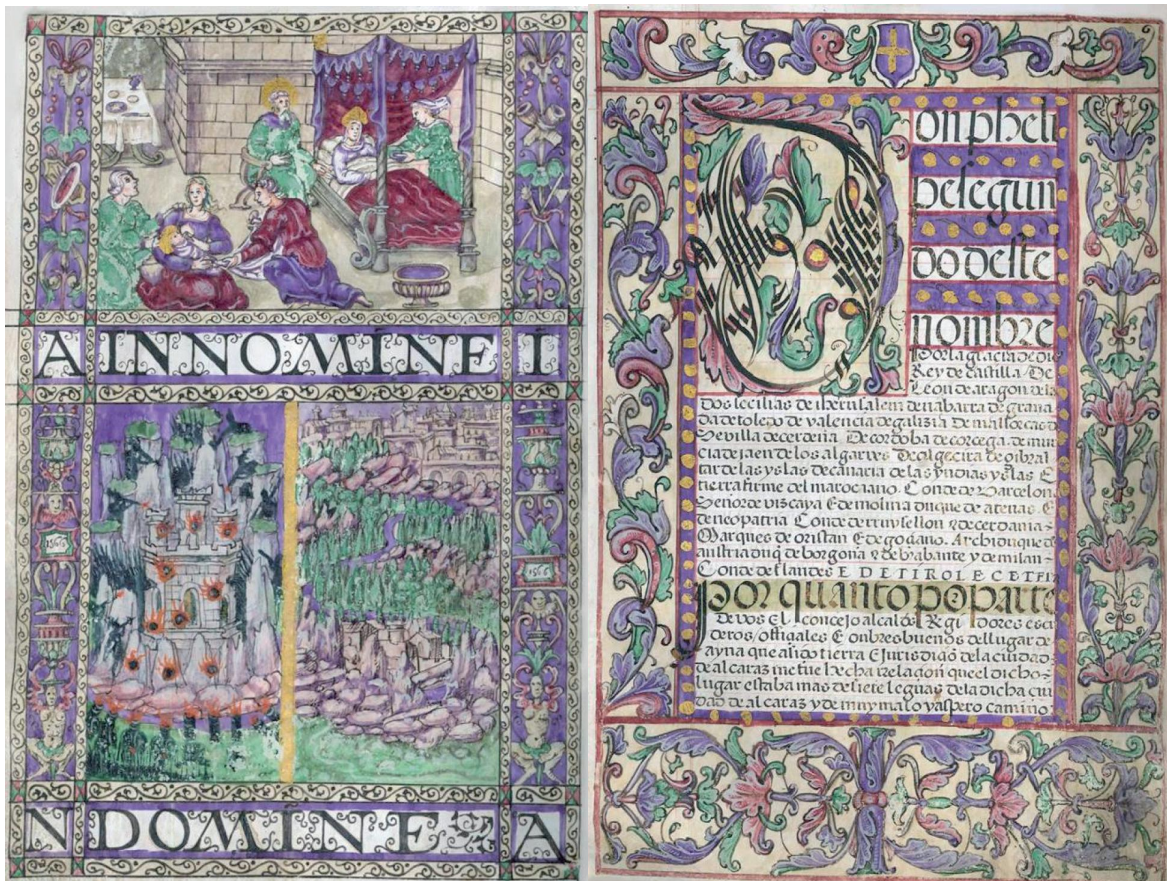 A INNOMINE I
1566
N DOMINE A
Don pheli
pe segun
do deste
nombre
Por la gracia de dis
Rey de castilla De
Leon de aragon de las
Dos secilias de iherusalem de nabarra de grana
da de toledo de valencia de galizia De mallorcas de
Sevilla de cerdena De cordoba de corcega de mur
cia de jaen de los algarves De algecira de gibral
tar de las yslas de canaria de las yndias yslas E
tierra firme del mar oceano. Conde de Barcelona
Señor de viscaya E de molina duque de atenas. E
de neopatria Conde de rruysellon e de cerdania
Marques de oristan E de goçiano. Archiduque de
austria duq de borgona e de brabante y de milan
Conde de flandes E DE TIROL ECETERA
por quanto por parte
de vos el concejo alcaldes Regidores escu
deros / offiçiales E onbres buenos del lugar de
ayna que a sido tierra E jurisdiçion de la ciudad
de alcaraz me fue hecha relaçion que el dicho
lugar estaba mas de siete leguas de la dicha ciu
dad de alcaraz y de muy malo y aspero camino